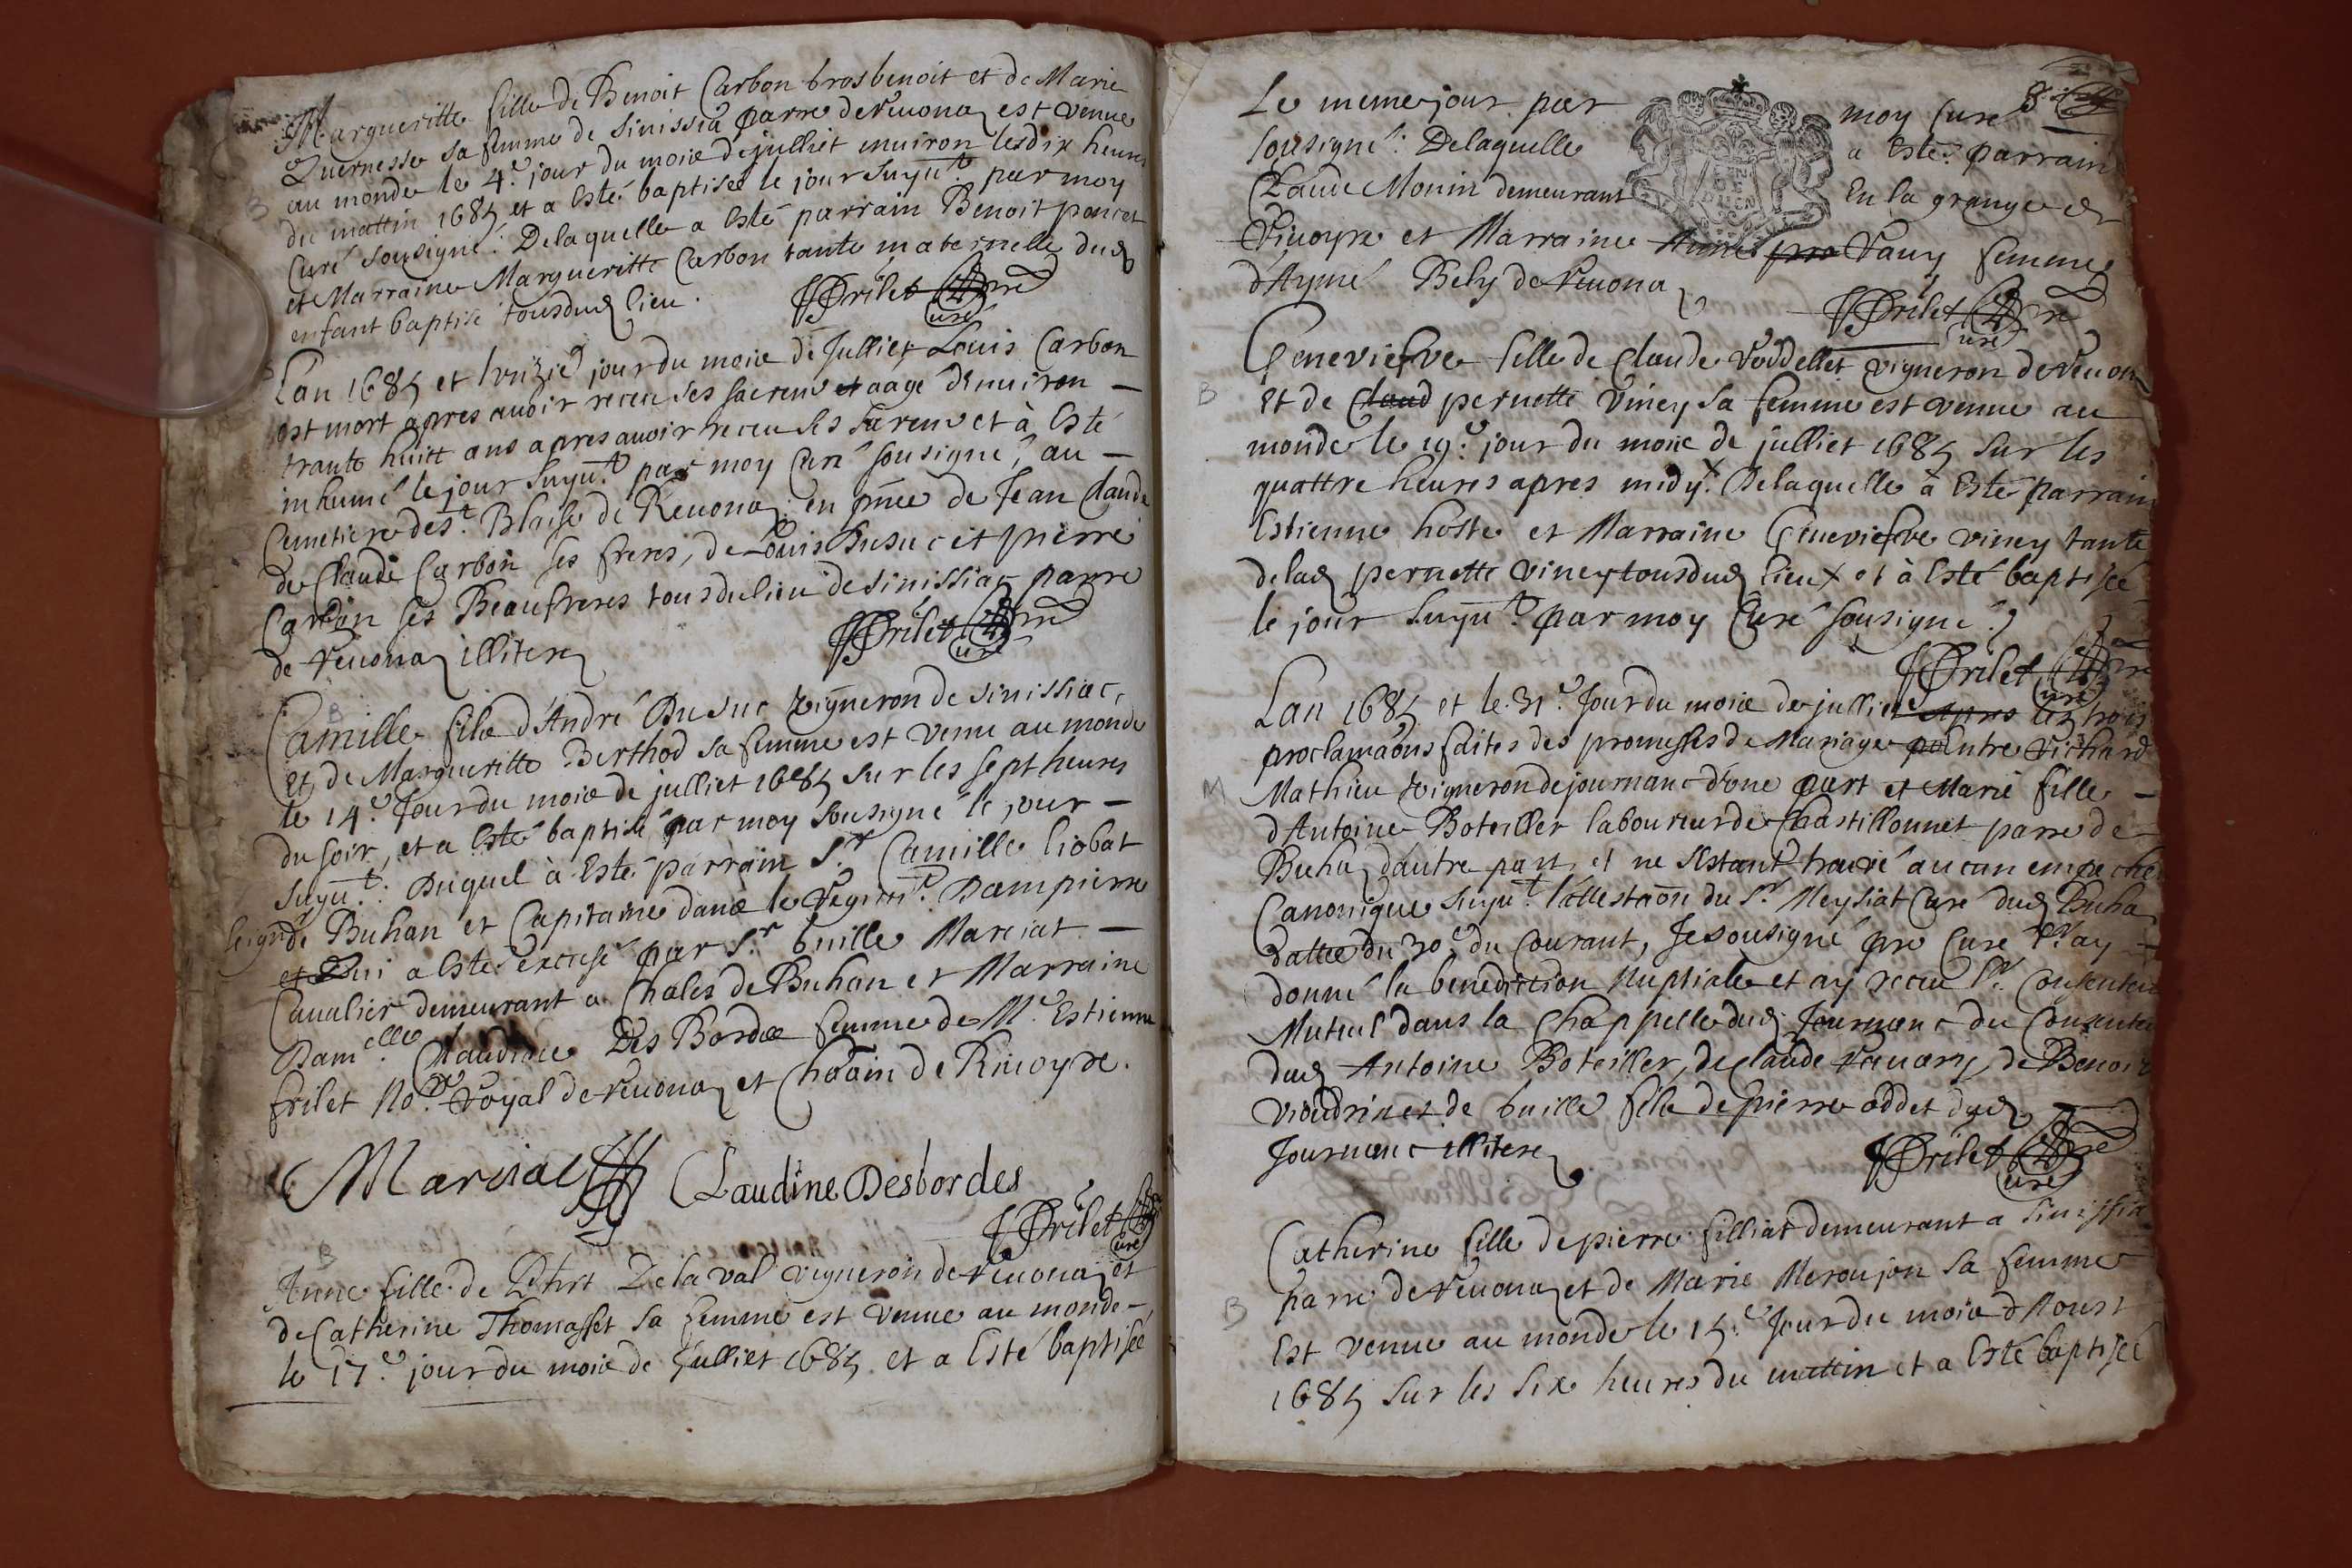 Margueritte fille de Benoit Carbon bros benoit et de Marie
Quernesse sa femme de Sinissia parre de Reuona est venue
au monde le 4.e jour du mois de julliet enuiron les dix heures
du mattin 1685 et a Esté baptisée le jour suyut. par moy
Curé sousigné: Delaquelle a Esté parrain Benoit poncet
et Marraine Margueritte Carbon tante maternelle dud
enfant baptisé tousdud lieu.
JFrilet pre Curé
Lan 1685 et jour du mois de Julliet Louis Carbon
est mort apres auoir receu ses sacrens et aagé denuiron –
trante huitt ans apres auoir receu ses sacrens et à Esté
inhumé le jour suyut. par moy Curé sousigné, au –
Cemetiere de st. Blaise de Reuona en pnce de Jean Claude
de Claude Carbon ses freres, de Louis Dusuc et pierre
Carbon ses Beaufreres tous du lieu de Sinissiac parre
de Reuona illiteres
JFrilet pre Curé
B
Camille fils d'André Dusuc vigneron de Sinissiac,
et, de Margueritte Berthod sa femme est venu au monde
le 14.e Jour du mois de julliet 1685 sur les sept heures
du soir, et a Esté baptisé par moy sousigné le jour –
suyut.: Duquel à Esté parrain S.r Camille liobat
seigr de Buhan et Capitaine dans le Regimt. Dampierre
et Qui a Esté excusé par S.r buille Marciat –
Caualier demeurant a Chales de Buhan et Marraine
Dam.elle Claudine Des Bordes femme de M.e Estienne
frilet No.re Royal de Reuona et Chââin de Riuoyre.
Marciat Claudine Desbordes
JFrilet Curé
B
Anne fille de Delaval vigneron de Reuona et
de Catherine Thomasset sa femme est venue au monde –
le 17.e jour du mois de Julliet 1685 et a Esté baptisée
8
Le meme jour par moy Curé
sousigné: Delaquelle a Esté parrain
Claude Monin demeurant En la grange de
Riuoyre et Marraine Annes pre Vauy femme
d'Aymé Bely de Reuona
JFrilet pre Curé
B
Geneviefve fille de Claude Voddellet vigneron de Reuona
et de Claud pernette Viney sa femme est venue au
monde le 19.e jour du mois de julliet 1685 sur les
quattre heures apres midy. Delaquelle a Esté parrain
Estienne hoste et Marraine Geneviefve viney tante
delad pernette viney tousdud lieu et à Esté baptisée
le jour suyut. par moy Curé sousigné.
JFrilet pre Curé
M
Lan 1685 et le 31.e Jour du mois de julliet apres les trois
proclamaons faites des promesses de Mariage entre Richard
Mathieu vigneron de journanc d'une part et Marie fille –
d'Antoine Boteiller laboureur de Chastillonnet parre de –
Buha dautre part, et ne s'estant trouvé aucun empeche
Canonique suyut. l'attestaon du S.r Meysiat Curé dud Buha
dattée du 30.e du courant, Je sousigné pre Curé l.r ay –
donné la benediction Nuptiale et ay receu l.r consentem
Mutuel dans la Chappelle dud Journanc du Consentem
dud Antoine Boteiller, de Claude de Benoit
vioudrin et de buille fils de pierre oddet dud
Journanc illiteres
JFrilet pre Curé
B
Catherine fille de pierre filliat demeurant a Sinissia
parre de Reuona et de Marie Meroujon sa femme
Est venue au monde le 15.e Jour du mois d'Aoust
1685 sur les six heures du mattin et a Esté baptisée